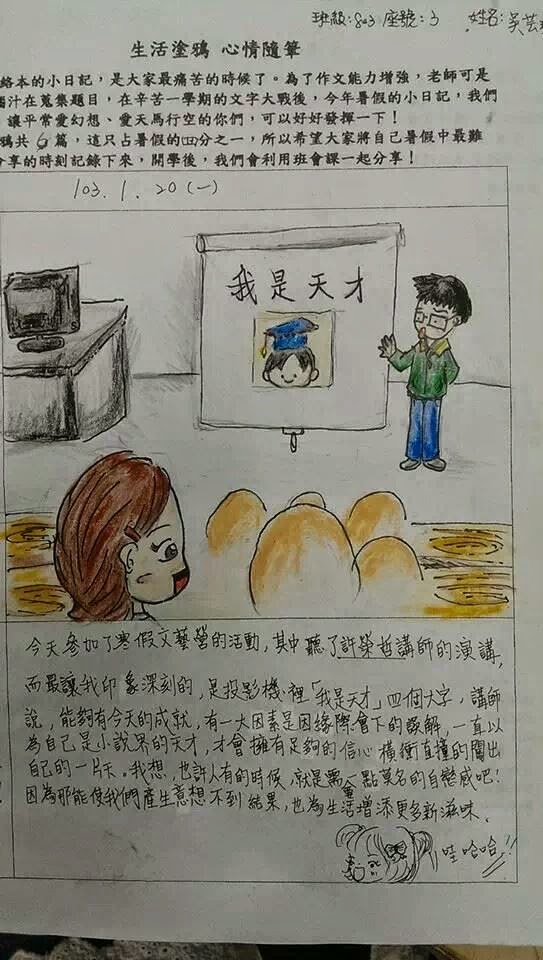 班級:803 座號:3 姓名:吳芸
生活塗鴉 心情隨筆
絡本的小日記，是大家最痛苦的時候了。為了作文能力增強，老師可是
汁在蒐集題目，在辛苦一學期的文字大戰後，今年暑假的小日記，我們
讓平常愛幻想、愛天馬行空的你們，可以好好發揮一下！
鴉共6篇，這只占暑假的四分之一，所以希望大家將自己暑假中最難
分享的時刻記錄下來，開學後，我們會利用班會課一起分享！
103.1.20(一)
我是天才
今天參加了寒假文藝營的活動,其中聽了許榮哲講師的演講,
而最讓我印象深刻的,是投影機裡「我是天才」四個大字,講師
說,能夠有今天的成就,有一大因素是因緣際會下的誤解,一直以
為自己是小說界的天才,才會擁有足夠的信心橫衝直撞的闖出
自己的一片天。我想,也許人有的時候,就是需要一點莫名的自戀感吧!
因為那能使我們產生意想不到結果,也為生活增添更多新滋味.
哇哈哈!!